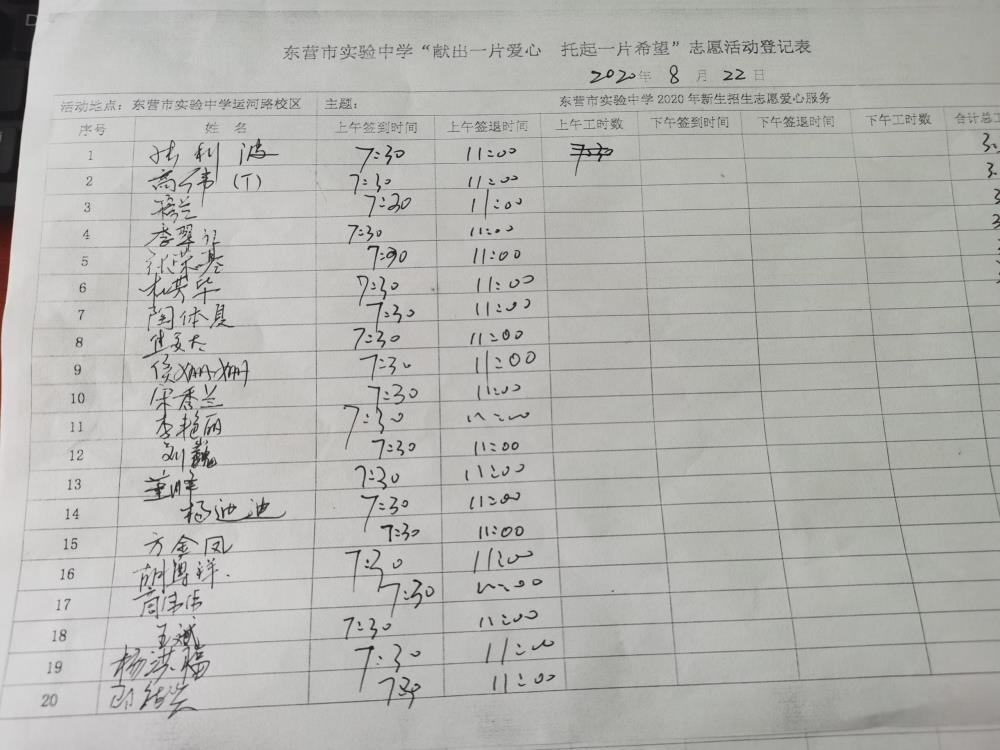 东营市实验中学“献出一片爱心 托起一片希望”志愿活动登记表
2020年 8 月 22 日
活动地点：东营市实验中学运河路校区 主题： 东营市实验中学2020年新生招生志愿爱心服务
序号 姓 名 上午签到时间 上午签退时间 上午工时数 下午签到时间 下午签退时间 下午工时数 合计总工
1 利波 7:30 11:00 7:30 3.
2 高伟(T) 7:30 11:00 3.
3 7:30 11:00 3
4 李翠 7:30 11:00 3
5 7:30 11:00
6 杜英华 7:30 11:00
7 陶体夏 7:30 11:00
8 7:30 11:00
9 侯姗姗 7:30 11:00
10 宋秀兰 7:30 11:00
11 李艳丽 7:30 11:00
12 刘巍 7:30 11:00
13 董 7:30 11:00
14 杨迪迪 7:30 11:00
15 方金凤 7:30 11:00
16 胡尊祥. 7:30 11:00
17 7:30 11:00
18 王斌 7:30 11:00
19 杨洪福 7:30 11:00
20 7:30 11:00